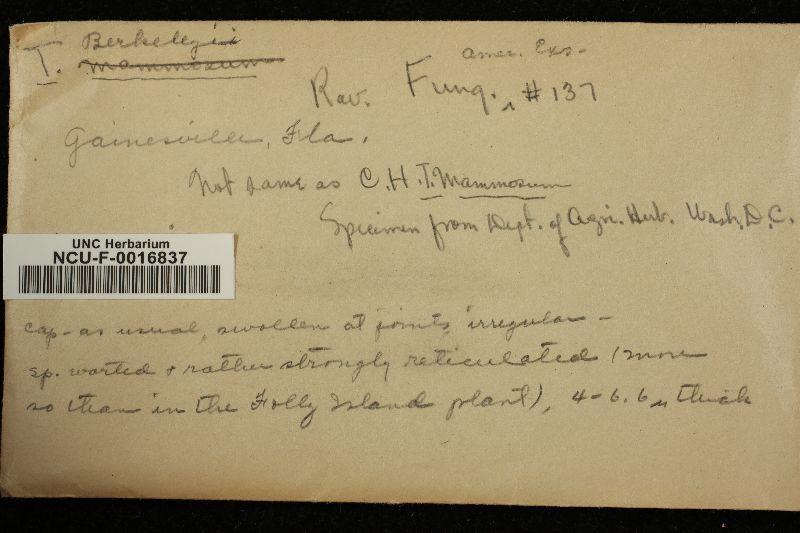 Berkeleyii
T. mammosum
Amer. Exs-
Rav. Fung. ‸ #137
Gainesville, Fla.
Not same as C.H. T. Mammosum
Specimen from Dept. of Agri. Herb. Wash. D.C.
UNC Herbarium
NCU-F-0016837
cap - as usual, swollen at joints, irregular -
sp. warted & rather strongly reticulated (more
so than in the Folly Island plant), 4-6.6 µ thick